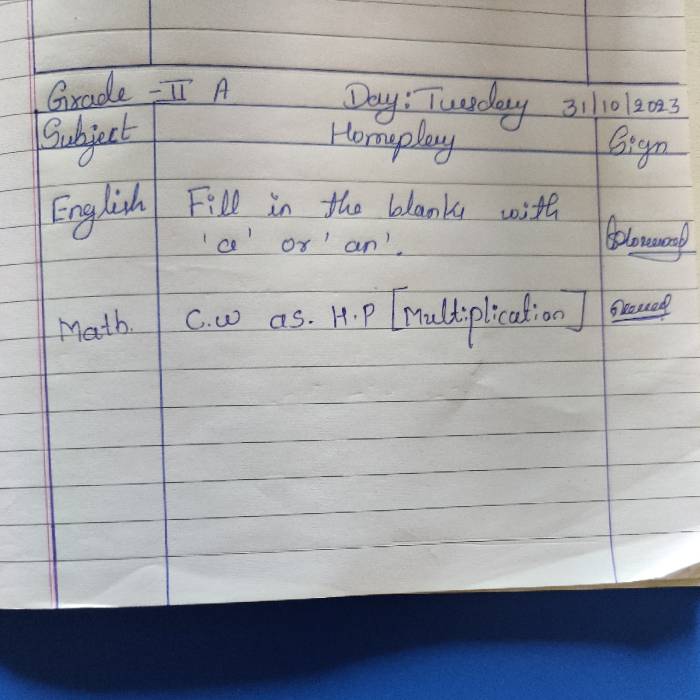 Grade - II A Day: Tuesday 31/10/2023
Subject Homeplay Sign
English Fill in the blanks with
'a' or 'an'.
Math. C.W as. H.P [Multiplication]